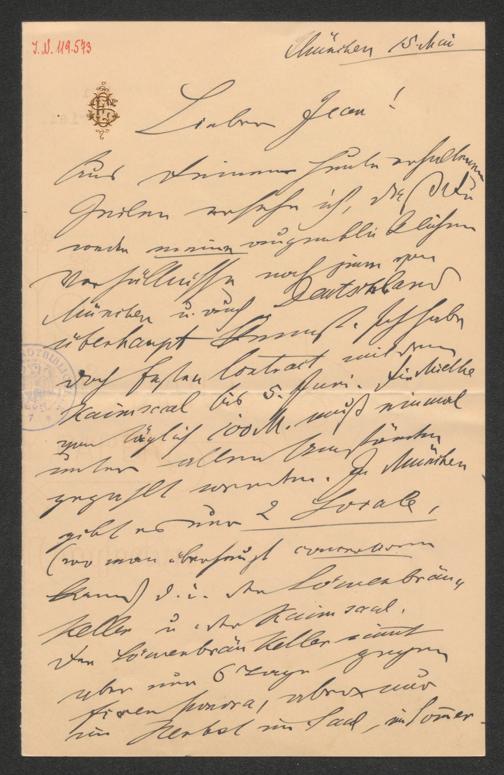 I.N. 119.573
München 15. Mai
Lieber Jean!
Aus Deinen heute erhaltenen
Zeilen ersehe ich, daß Du
weder meine augenblicklichen
Verhältnisse noch jene von
München u. auch Deutschland
überhaupt kennst. Ich habe
doch festen Contract mit dem
Kaimsaal bis 5. Juni. Die Miethe
von täglich 100 M. muß einmal
unter allen Umständen
gezahlt werden. In München
gibt es nur 2 Locale,
(wo man überhaupt concertiren
kann) d. i. der Löwenbräu
Keller u. der Kaimsaal.
Der Löwenbräu Keller nimmt
aber nur 6 Tage gegen
fixen Honorar, aber nur
im Herbst im Saal, im Sommer